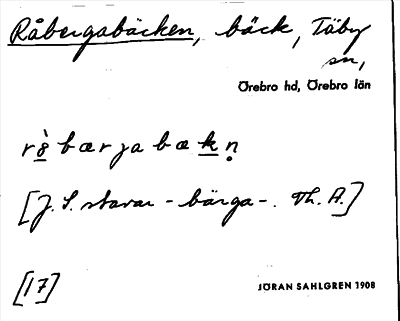 Råbergabäcken, bäck, Täby
sn,
Örebro hd, Örebro län
rò̱bærjabæḵṇ
[J. S. stavar - bärga -. Th. A.]
[17]
JÖRAN SAHLGREN 1908